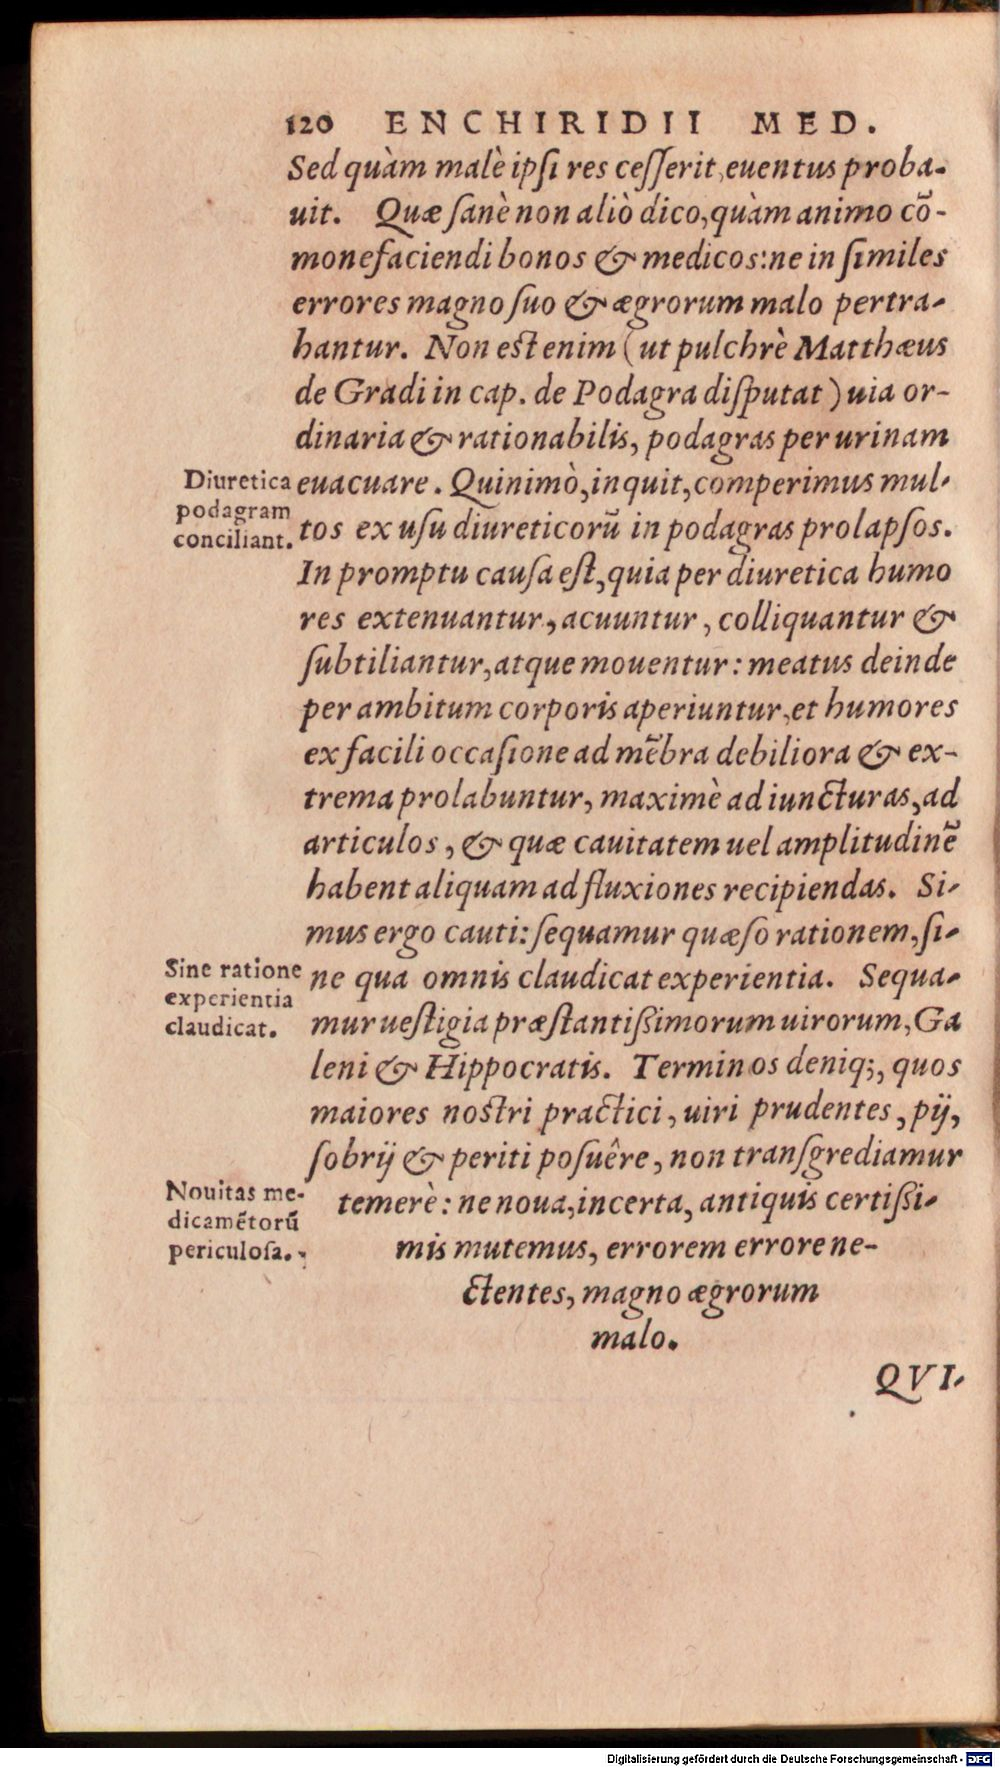 120 ENCHIRIDII MED.
Sed quàm malè ipſi res ceſſerit, euentus proba-
uit. Quæ ſanè non aliò dico, quàm animo cō-
monefaciendi bonos & medicos: ne in ſimiles
errores magno ſuo & ægrorum malo pertra-
hantur. Non est enim (ut pulchrè Matthæus
de Gradi in cap. de Podagra diſputat) uia or-
dinaria & rationabilis, podagras per urinam
Diuretica
podagram
conciliant.
euacuare. Quinimò, inquit, comperimus mul-
tos ex uſu diureticorū in podagras prolapſos.
In promptu cauſa eſt, quia per diuretica humo
res extenuantur, acuuntur, colliquantur &
ſubtiliantur, atque mouentur: meatus deinde
per ambitum corporis aperiuntur, et humores
ex facili occaſione ad mēbra debiliora & ex-
trema prolabuntur, maximè ad iuncturas, ad
articulos, & quæ cauitatem uel amplitudinē
habent aliquam ad fluxiones recipiendas. Si-
mus ergo cauti: ſequamur quæſo rationem, ſi-
Sine ratione
experientia
claudicat.
ne qua omnis claudicat experientia. Sequa-
mur ueſtigia præſtantißimorum uirorum, Ga
leni & Hippocratis. Terminos deniq;, quos
maiores nostri practici, uiri prudentes, pij,
ſobrij & periti poſuêre, non tranſgrediamur
Nouitas me-
dicamētorū
periculoſa.
temerè: ne noua, incerta, antiquis certißi-
mis mutemus, errorem errore ne-
ctentes, magno ægrorum
malo.
QVI-
Digitalisierung gefördert durch die Deutsche Forschungsgemeinschaft - DFG